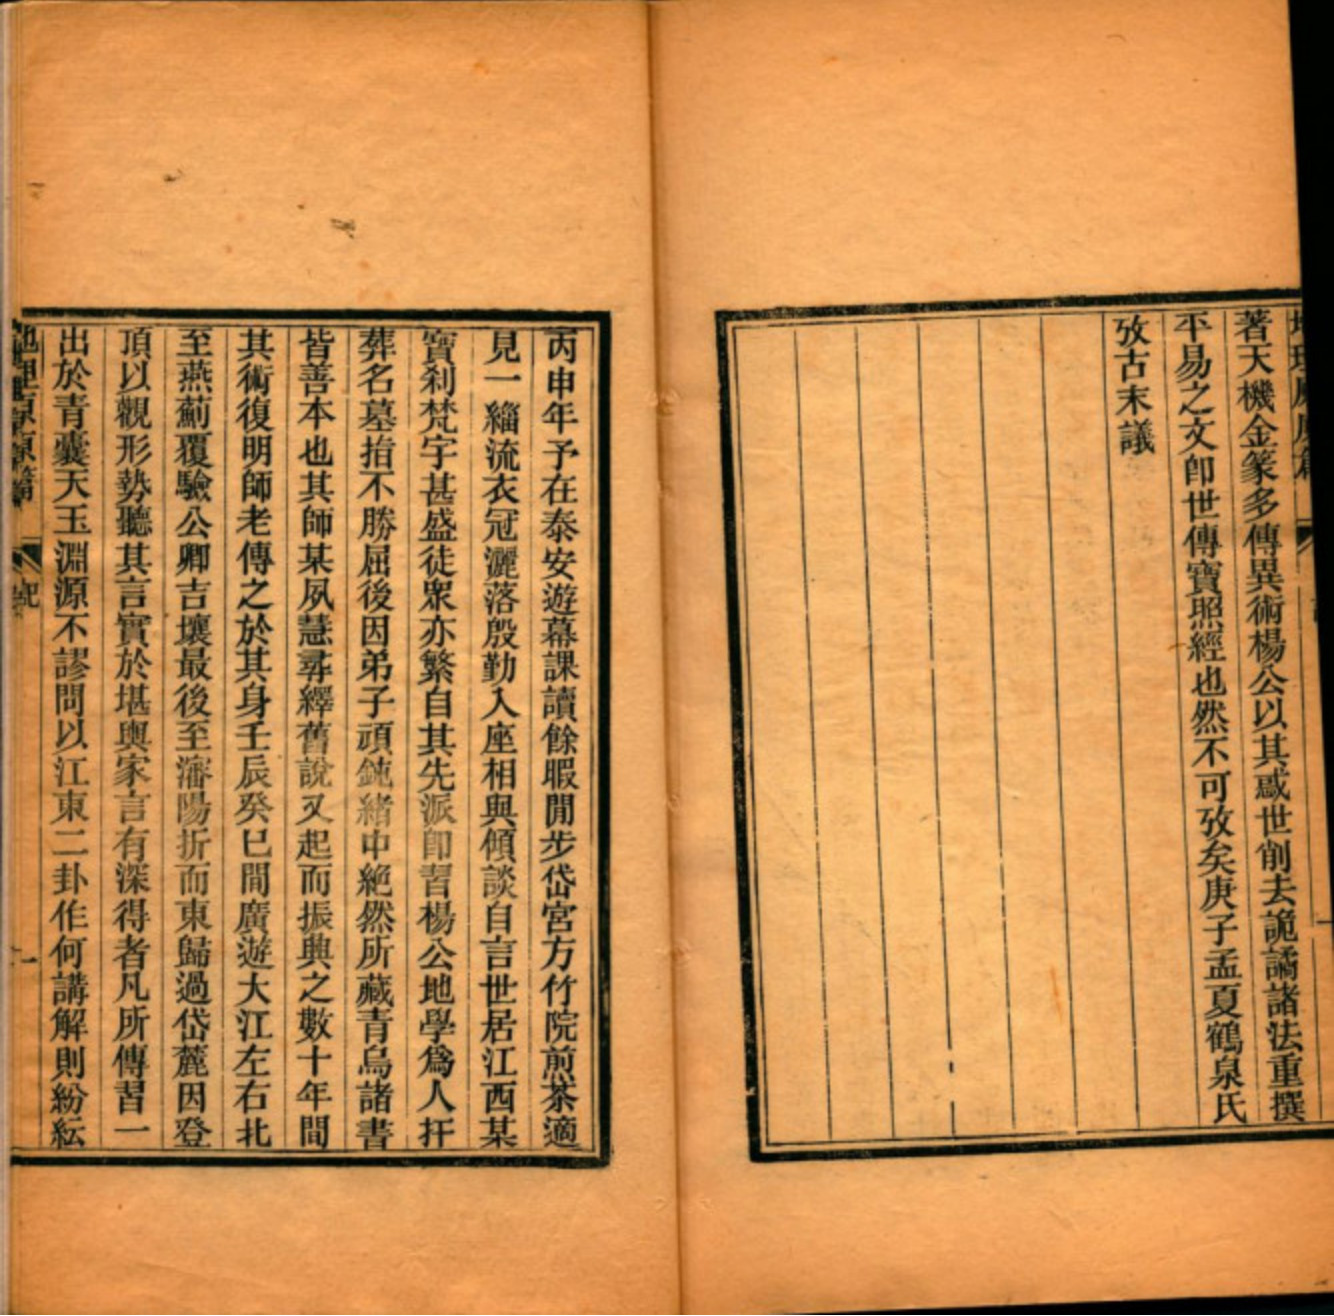 著天機金篆多傳異術楊公以其惑世削去詭譎諸法重撰
平易之文卽世傳寶照經也然不可攷矣庚子孟夏鶴泉氏
攷古末議
丙申年予在泰安遊幕課讀餘暇閒步岱宮方竹院煎茶適
見一緇流衣冠灑落殷勤入座相與傾談自言世居江西某
寶刹梵宇甚盛徒眾亦繁自其先派卽習楊公地學爲人扦
葬名墓指不勝屈後因弟子頑鈍緒中絶然所藏青烏諸書
皆善本也其師某夙慧尋繹舊說又起而振興之數十年間
其術復明師老傳之於其身壬辰癸巳間廣遊大江左右北
至燕薊覆驗公卿吉壤最後至瀋陽折而東歸過岱麓因登
頂以觀形勢聽其言實於堪輿家言有深得者凡所傳習一
出於青囊天玉淵源不謬問以江東二卦作何講解則紛紜
紀
一